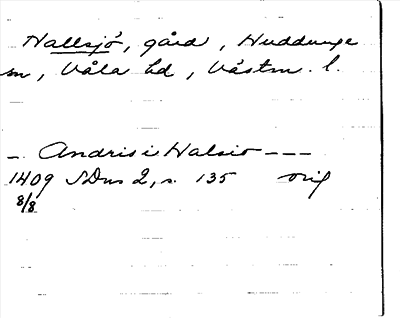 Hallsjö, gård, Huddunge
sn, Våla hd, Västm. l.
- Andris i Halsio ---
1409 SDns 2, s. 135 orig
8/8